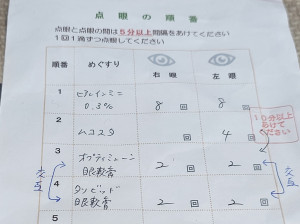 点眼の順番
点眼と点眼の間は５分以上間隔をあけてください
１回１滴ずつ点眼してください
順番 めぐすり 右眼 左眼
1 ヒアレインミニ 0.3% 8 回 8 回
2 ムコスタ 回 4 回
10分以上あけてください
3 オフロキシン 眼軟膏 2 回 2 回
交互 交互
4 タリビッド 眼軟膏 2 回 2 回
5